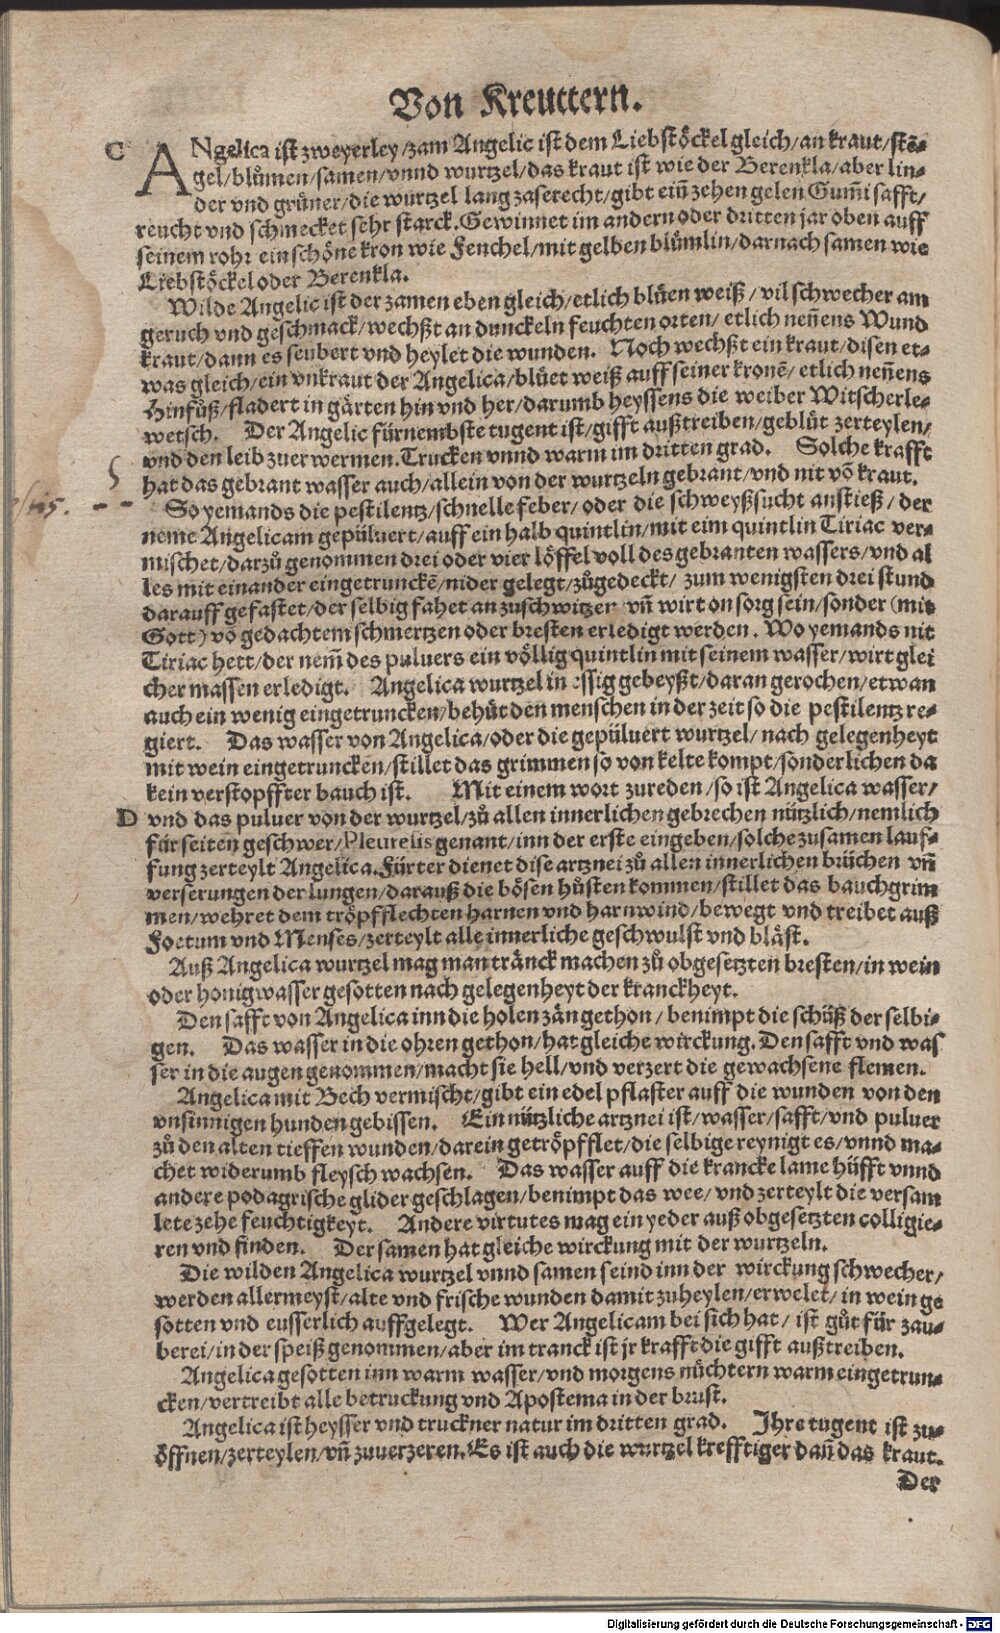 Von Kreuttern.
C ANgelica ist zweyerley/zam Angelic ist dem Liebstöckel gleich/an kraut/stē⸗
gel/blůmen/samen/vnnd wurtzel/das kraut ist wie der Berenkla/aber lin⸗
der vnd grüner/die wurtzel lang zaserecht/gibt ein̄ zehen gelen Gum̄i safft/
reucht vnd schmecket sehr starck. Gewinnet im andern oder dritten jar oben auff
seinem rohr ein schöne kron wie Fenchel/mit gelben blümlin/darnach samen wie
Liebstöckel oder Berenkla.
Wilde Angelic ist der zamen eben gleich/etlich blüen weiß/vil schwecher am
geruch vnd geschmack/wechßt an dunckeln feuchten orten/etlich nen̄ens Wund
kraut/dann es seubert vnd heylet die wunden. Noch wechßt ein kraut/disen et⸗
was gleich/ein vnkraut der Angelica/blüet weiß auff seiner kronē/etlich nen̄ens
Hinfüß/fladert in gärten hin vnd her/darumb heyssens die weiber Witscherle⸗
wetsch. Der Angelic fürnembste tugent ist/gifft außtreiben/geblüt zerteylen/
vnd den leib zuerwermen. Trucken vnnd warm im dritten grad. Solche krafft
hat das gebrant wasser auch/allein von der wurtzeln gebrant/vnd nit vō kraut.
So yemands die pestilentz/schnelle feber/oder die schweyßsucht anstieß/der
neme Angelicam gepüluert/auff ein halb quintlin/mit eim quintlin Tiriac ver⸗
mischet/darzů genommen drei oder vier löffel voll des gebranten wassers/vnd al
les mit einander eingetrunckē/nider gelegt/zůgedeckt/zum wenigsten drei stund
darauff gefastet/der selbig fahet an zuschwitzen vn̄ wirt on sorg sein/sonder (mit
Gott) vō gedachtem schmertzen oder bresten erledigt werden. Wo yemands nit
Tiriac hett/der nem̄ des puluers ein völlig quintlin mit seinem wasser/wirt glei
cher massen erledigt. Angelica wurtzel in essig gebeyßt/daran gerochen/etwan
auch ein wenig eingetruncken/behüt den menschen in der zeit so die pestilentz re⸗
giert. Das wasser von Angelica/oder die gepüluert wurtzel/nach gelegenheyt
mit wein eingetruncken/stillet das grimmen so von kelte kompt/sonderlichen da
kein verstopffter bauch ist. Mit einem wort zureden/so ist Angelica wasser/
D vnd das puluer von der wurtzel/zů allen innerlichen gebrechen nützlich/nemlich
für seiten geschwer/Pleurelis genant/inn der erste eingeben/solche zusamen lauf⸗
fung zerteylt Angelica. Fürter dienet dise artznei zů allen innerlichen brüchen vn̄
verserungen der lungen/darauß die bösen hůsten kommen/stillet das bauchgrim
men/wehret dem tröpfflechten harnen vnd harnwind/bewegt vnd treibet auß
Foetum vnd Menses/zerteylt alle innerliche geschwulst vnd bläst.
Auß Angelica wurtzel mag man tränck machen zů obgesetzten bresten/in wein
oder honigwasser gesotten nach gelegenheyt der kranckheyt.
Den safft von Angelica inn die holen zän gethon/benimpt die schüß der selbi⸗
gen. Das wasser in die ohren gethon/hat gleiche wirckung. Den safft vnd was
ser in die augen genommen/macht sie hell/vnd verzert die gewachsene flemen.
Angelica mit Bech vermischt/gibt ein edel pflaster auff die wunden von den
vnsinnigen hunden gebissen. Ein nützliche artznei ist/wasser/safft/vnd puluer
zů den alten tieffen wunden/darein getröpfflet/die selbige reynigt es/vnnd ma⸗
chet widerumb fleysch wachsen. Das wasser auff die krancke lame hüfft vnnd
andere podagrische glider geschlagen/benimpt das wee/vnd zerteylt die versam
lete zehe feuchtigkeyt. Andere virtutes mag ein yeder auß obgesetzten colligie⸗
ren vnd finden. Der samen hat gleiche wirckung mit der wurtzeln.
Die wilden Angelica wurtzel vnnd samen seind inn der wirckung schwecher/
werden allermeyst/alte vnd frische wunden damit zuheylen/erwelet/in wein ge
sotten vnd eusserlich auffgelegt. Wer Angelicam bei sich hat/ist gůt für zau⸗
berei/in der speiß genommen/aber im tranck ist jr krafft die gifft außtreiben.
Angelica gesotten inn warm wasser/vnd morgens nüchtern warm eingetrun⸗
cken/vertreibt alle betruckung vnd Apostema in der brust.
Angelica ist heysser vnd truckner natur im dritten grad. Ihre tugent ist zu⸗
öffnen/zerteylen/vn̄ zuuerzeren. Es ist auch die wurtzel krefftiger dan̄ das kraut.
Der
Digitalisierung gefördert durch die Deutsche Forschungsgemeinschaft - DFG